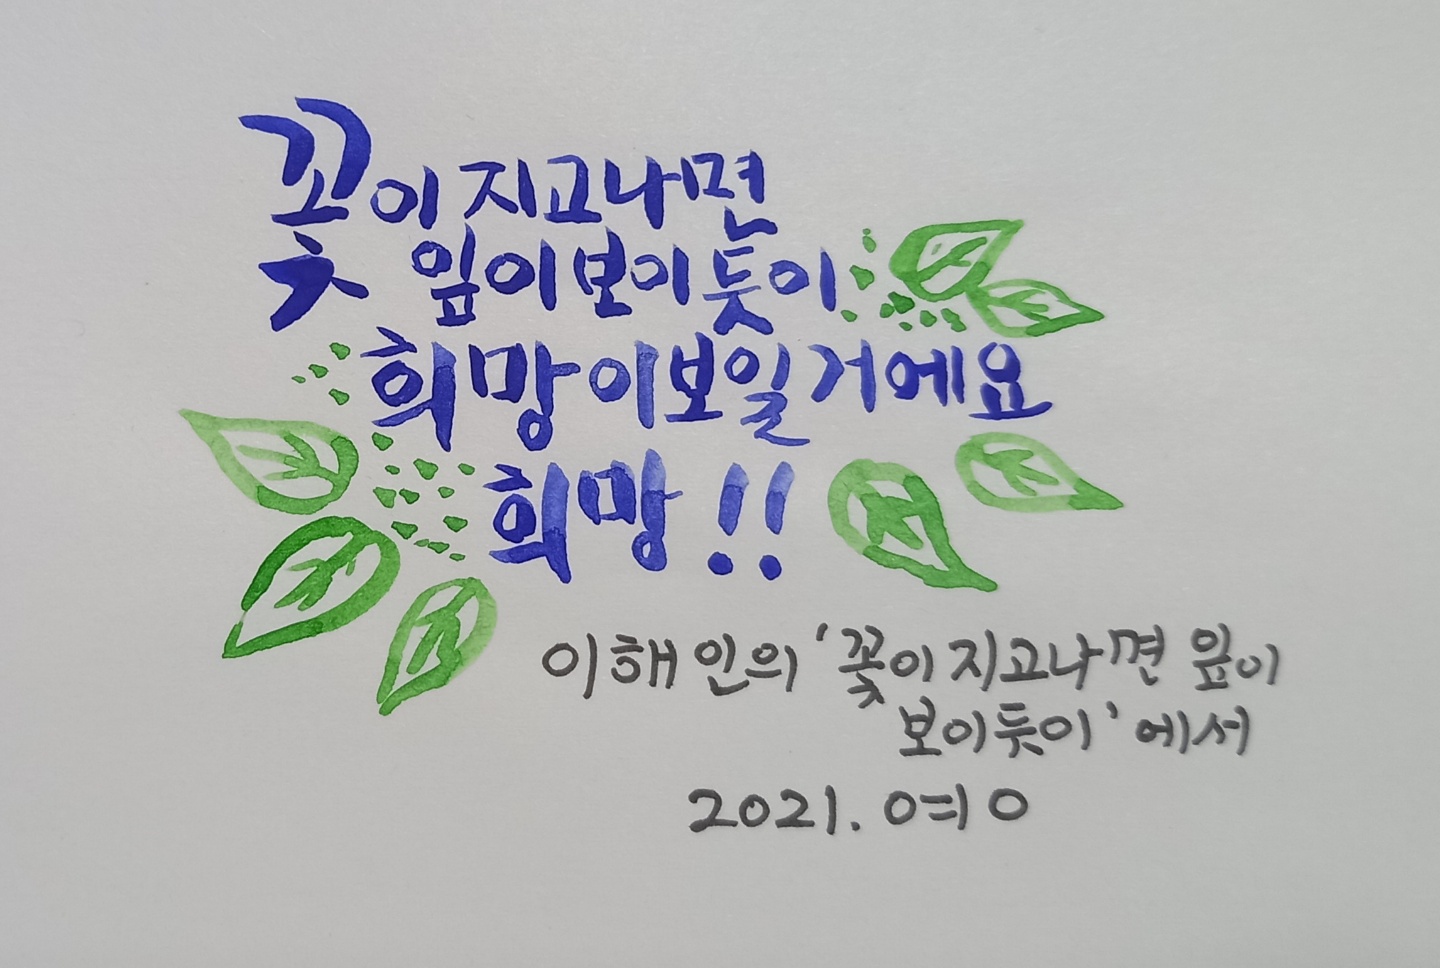 꽃이 지고나면
잎이 보이듯이
희망이 보일 거에요
희망!!
이해인의 '꽃이 지고나면 잎이
보이듯이' 에서
2021.